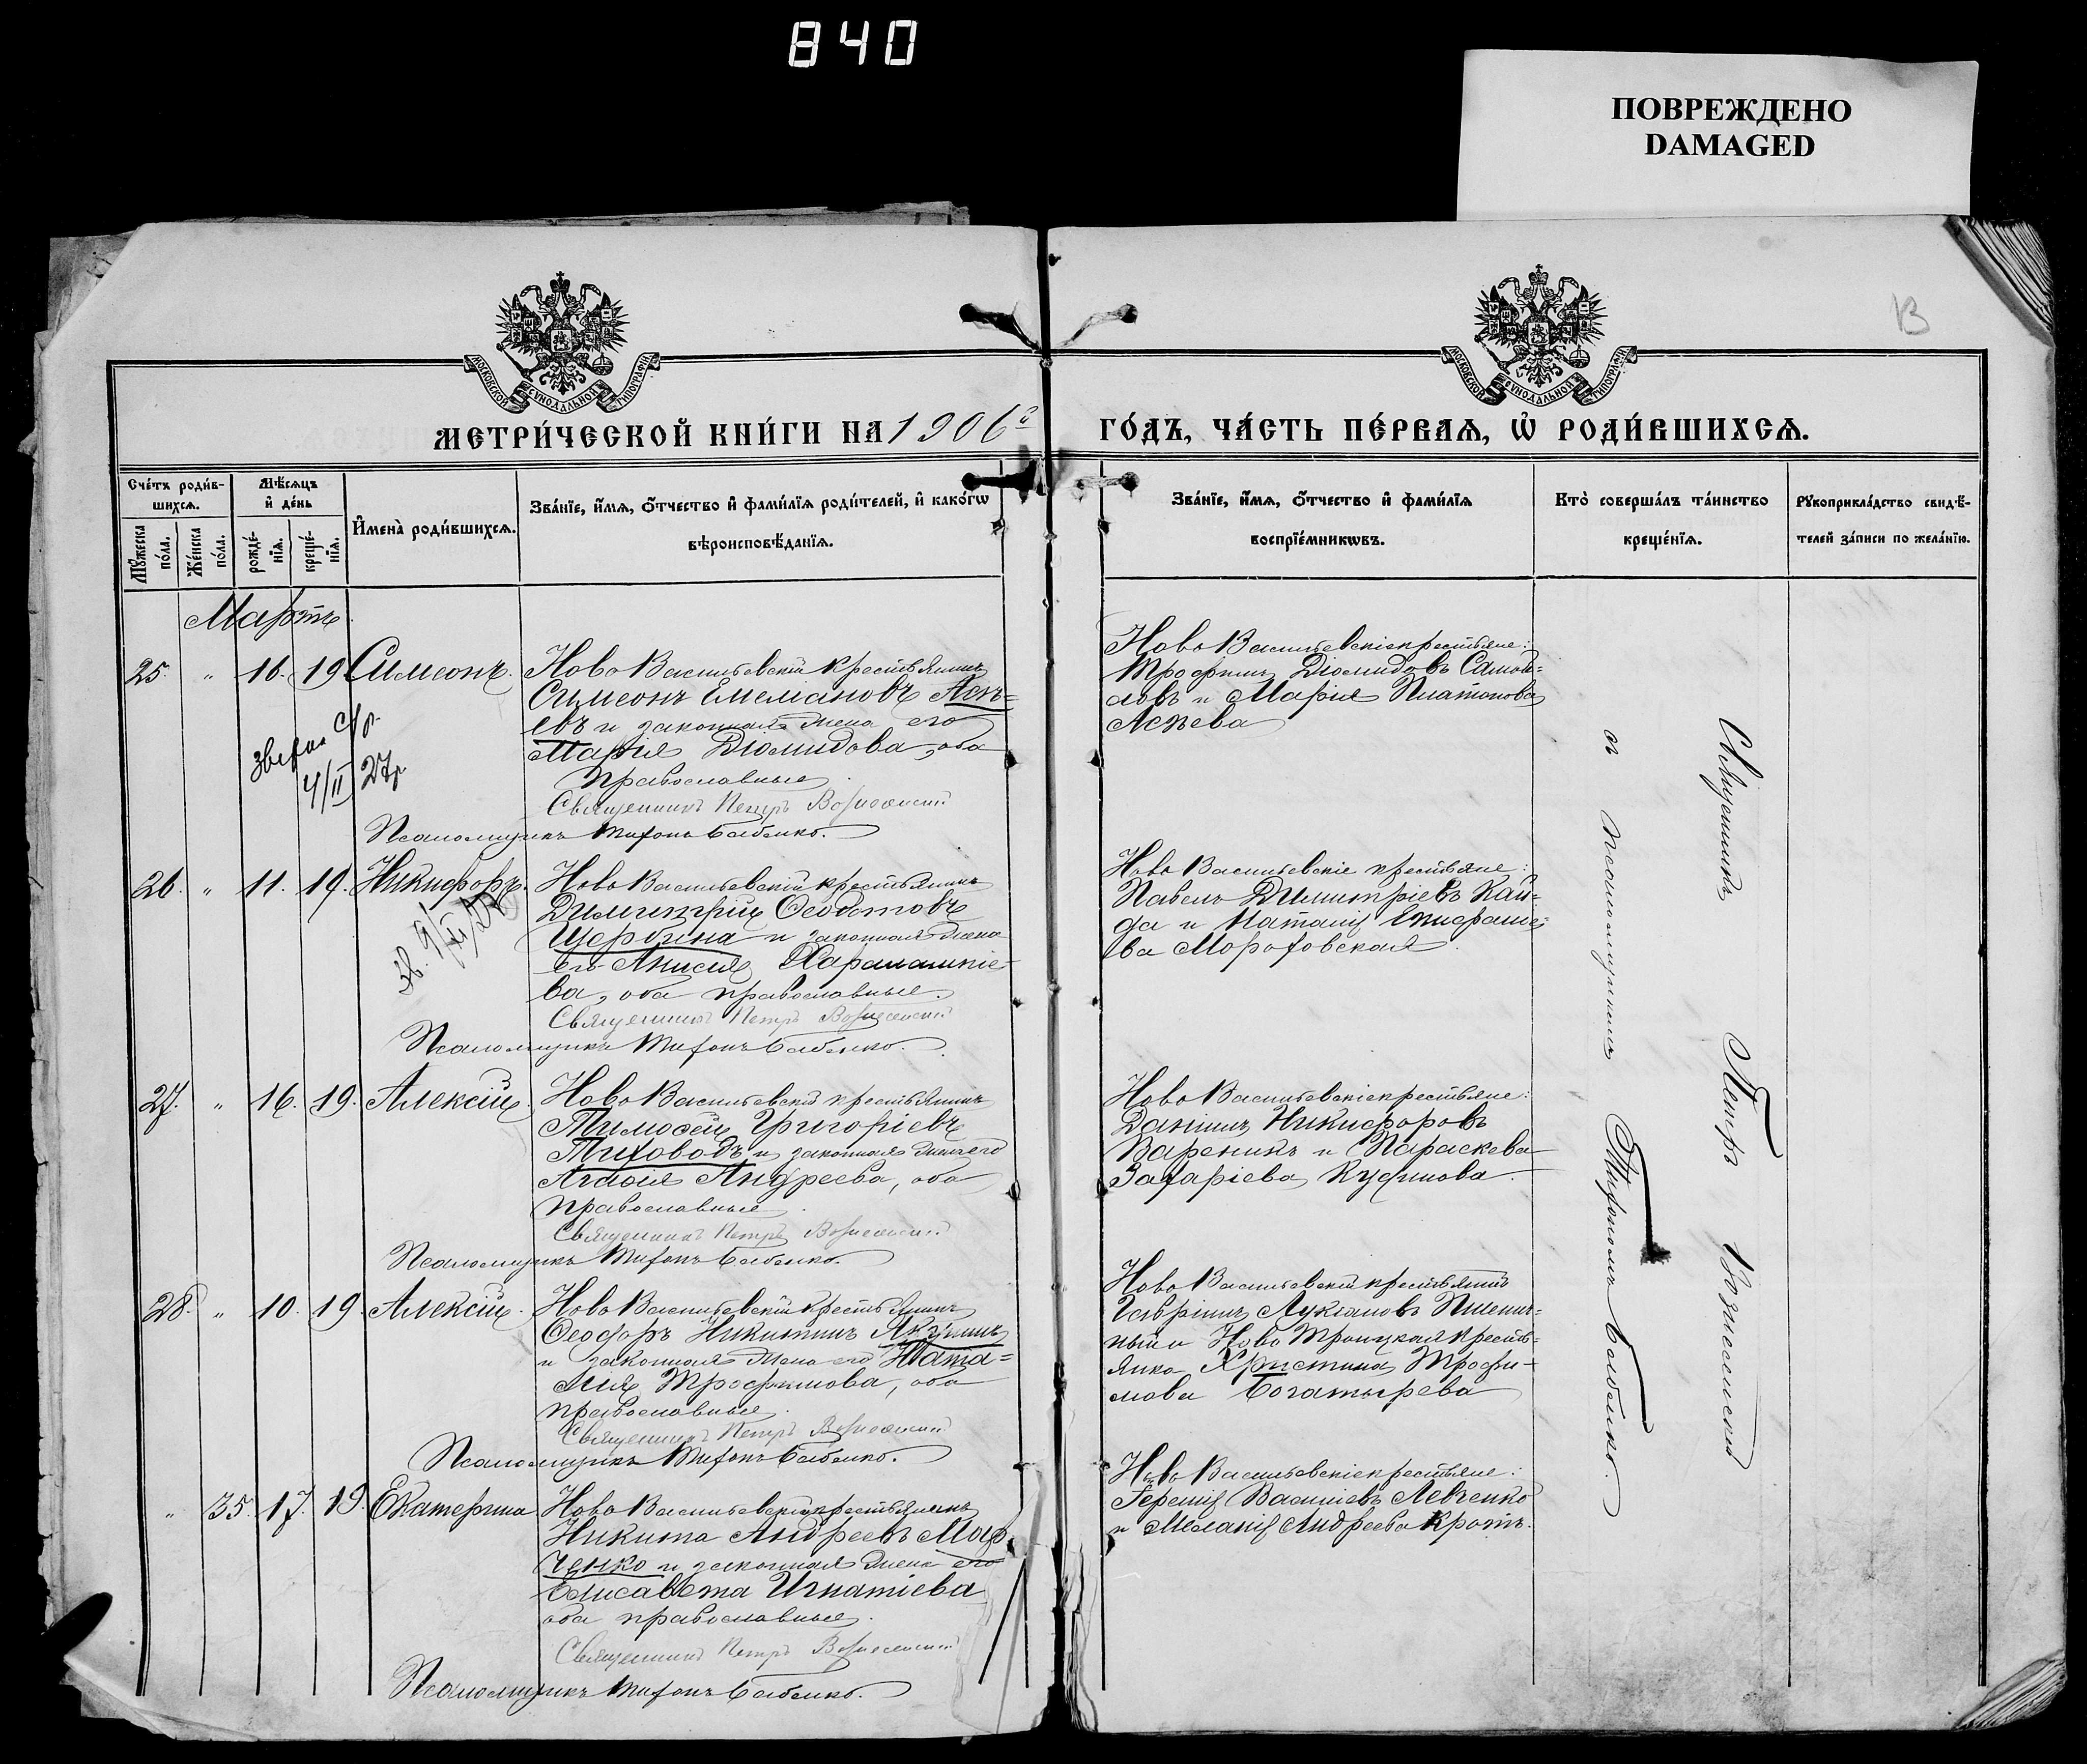 840
ПОВРЕЖДЕНО
DAMAGED
МОСКОВСКОЙ СѴНОДАЛЬНОЙ ТИПОГРАФІИ
МОСКОВСКОЙ СѴНОДАЛЬНОЙ ТИПОГРАФІИ
МЕТРИ́ЧЕСКОЙ КНИ́ГИ НА 1906 г
ГО́ДЪ, ЧА́СТЬ ПЕ́РВАѦ, Ѡ҆ РОДИ́ВШИХСѦ.
Сче́тъ роди́в-
шихсѧ.
Мꙋ́жеска по́ла.
Же́нска по́ла.
Мѣ́сѧцъ
и҆ де́нь
рожде́-
нїѧ.
креще́-
нїѧ.
И҆мена̀ роди́вшихсѧ.
Зва́нїе, и҆́мѧ, ѻ҆́тчество и҆ фами́лїѧ роди́телей, и҆ како́гѡ
вѣроисповѣ́данїѧ.
Зва́нїе, и҆́мѧ, ѻ҆́тчество и҆ фами́лїѧ
воспрїе́мникѡвъ.
Кто̀ соверша́лъ та́инство
креще́нїѧ.
Рꙋкоприкла́дство свидѣ́-
телей за́писи по жела́нїю.
Мартъ
25. " 16. 19 Симеонъ.
Ново Васильевскій крестьянинъ
Симеонъ Емельяновъ Асѣ=
евъ и законная жена его
Марія Діомидова, оба
православные.
Священникъ Петръ Вознесенскій
Псаломщикъ Тихонъ Бабенко.
4/II 27г
Ново Васильевскіе крестьяне:
Трофимъ Діомидовъ Самой=
ловъ и Марія Платонова
Асѣева
26. " 11. 19. Никифоръ.
Ново Васильевскій крестьянинъ
Димитрій Ѳеодотовъ
Щербина и законная жена
его Анисія Харалампіе-
ва, оба православные.
Священникъ Петръ Вознесенскій
Псаломщикъ Тихонъ Бабенко.
Ново Васильевскіе крестьяне:
Павелъ Димитріевъ Кай=
да и Наталія Епифаніе=
ва Мороховская.
27. " 16. 19. Алексій.
Ново Васильевскій крестьянинъ
Тимоѳей Григоріевъ
Тиховодъ и законная жена его
Агаѳія Андреева, оба
православные.
Священникъ Петръ Вознесенскій
Псаломщикъ Тихонъ Бабенко.
Ново Васильевскіе крестьяне:
Даніилъ Никифоровъ
Вареникъ и Параскева
Захаріева
28. " 10. 19. Алексій.
Ново Васильевскій крестьянинъ
Ѳеодоръ Никитинъ Якунинъ
и законная жена его Ната=
лія Трофимова, оба
православные.
Священникъ Петръ Вознесенскій
Псаломщикъ Тихонъ Бабенко.
Ново Васильевскій крестьянинъ
Гавріилъ Лукіановъ Пшенич=
ный и Ново Троицкая кресть=
янка Христина Трофи-
мова Богатырева
" 35. 17. 19. Екатерина
Ново Васильевскій крестьянинъ
Никита Андреевъ Мар
ченко и законная жена его
Елисавета Игнатіева
оба православные.
Священникъ Петръ Вознесенскій
Псаломщикъ Тихонъ Бабенко.
Ново Васильевскіе крестьяне:
Іеремія Василіевъ Левченко
и Меланія Андреева Кротъ.
Священникъ Петръ Вознесенскій
съ псаломщикомъ Тихономъ Бабенко.